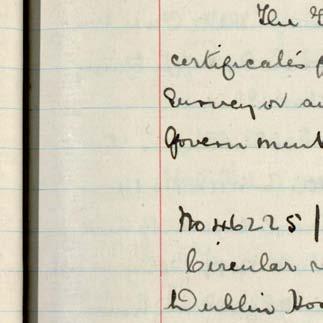 The
certificates
Surveyor
Government
No 46225 |
Circular
Dublin